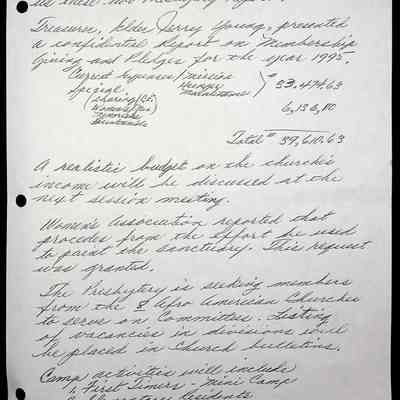 Treasurer, Elder Jerry Young, presented
a confidential Report on Membership
Giving and Pledges for the year 1995.
Current Expenses/mission
Hunger
Maintenance } # 33,474.63
Special
(sharing/
Women's
Memorials
6,136.00
Total # 39,610.63
A realistic budget on the church's
income will be discussed at the
next session meeting.
Women's Association reported that
procedes from the effort be used
to paint the sanctuary. This request
was granted.
The Presbytery is seeking members
from the 5 Afro American Churches
to serve on Committees. Listing
of vacancies in divisions will
be placed in Church bulletins.
Camp activities will include
1. First Timers - Mini Camp
Residents